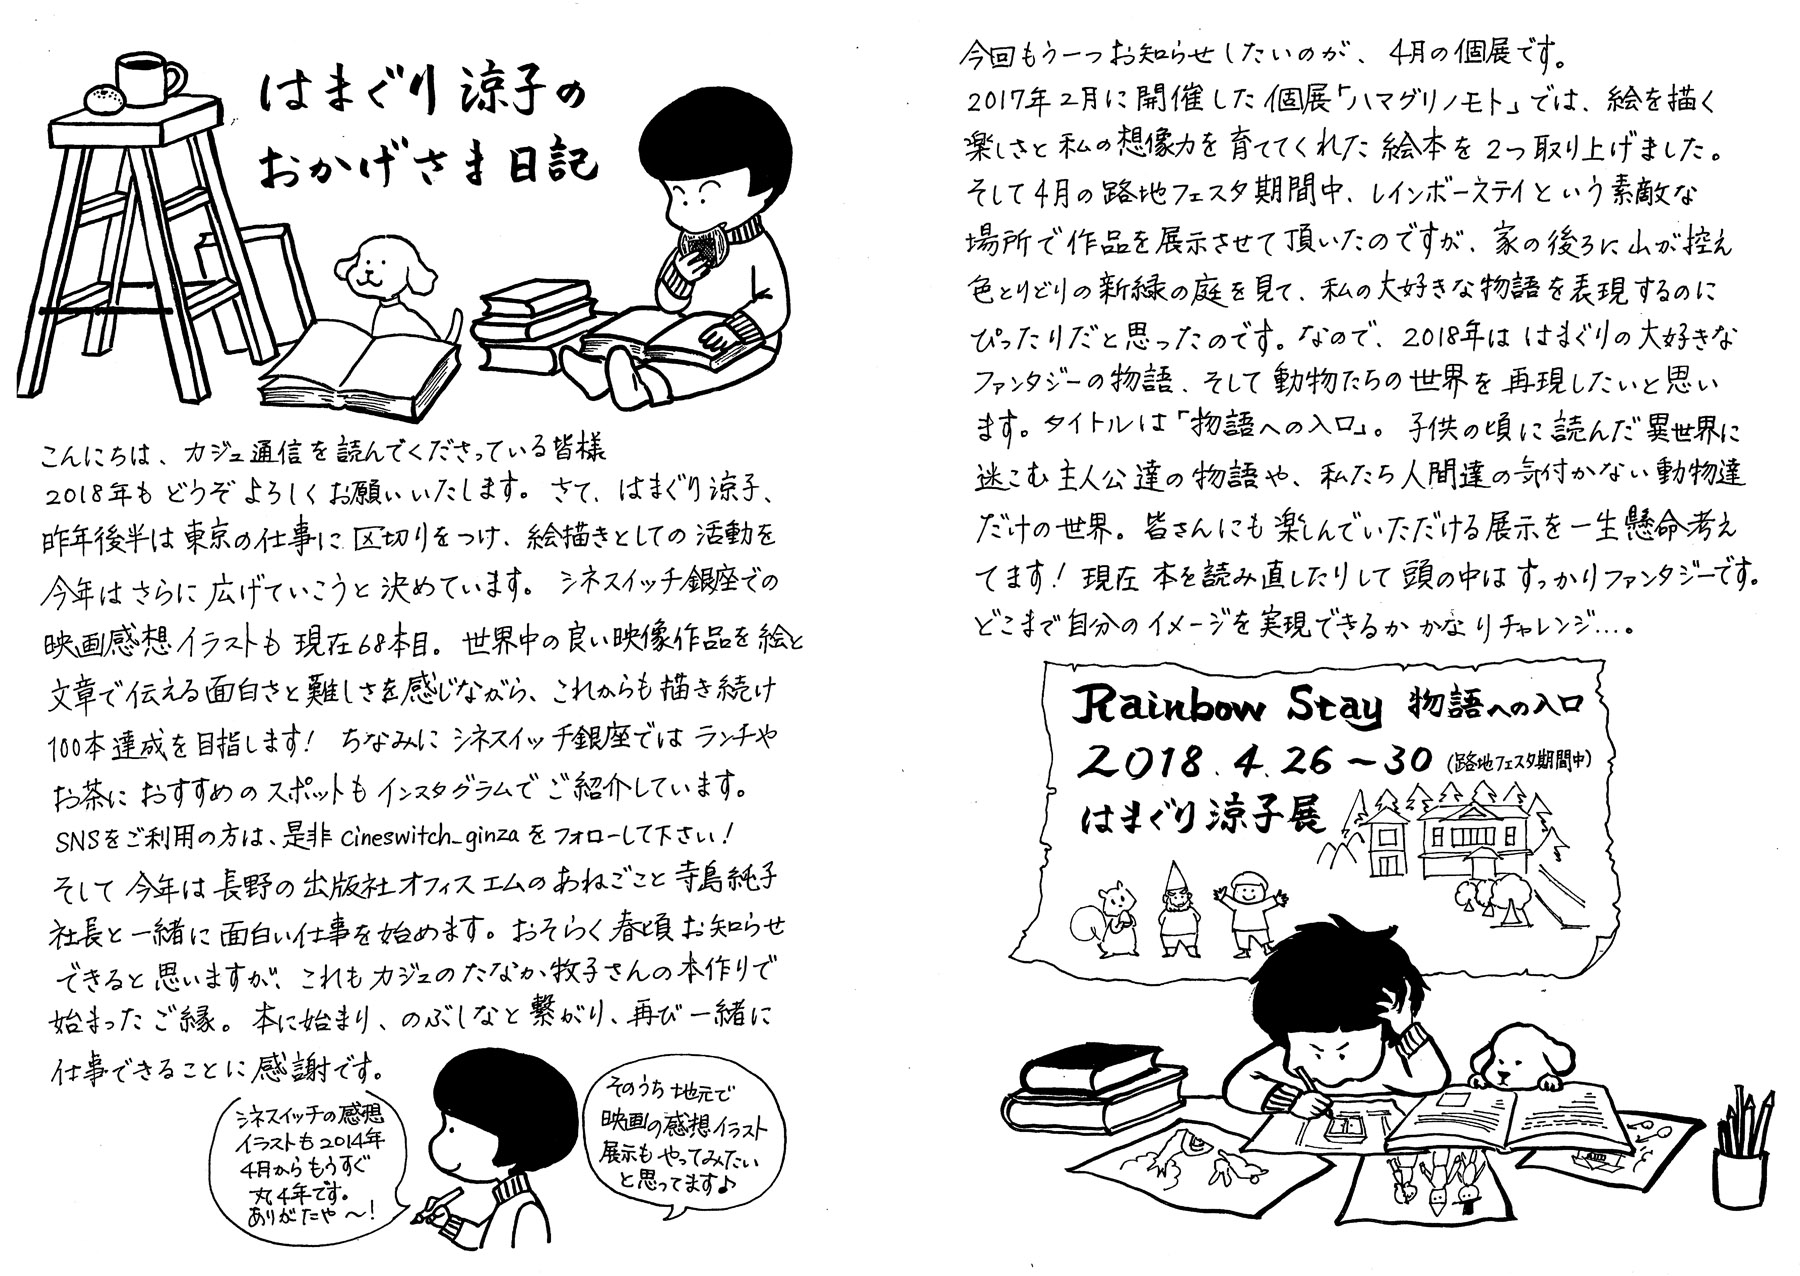 はまぐり涼子の
おかげさま日記
こんにちは、カジュ通信を読んでくださっている皆様
2018年もどうぞよろしくお願いいたします。さて、はまぐり涼子、
昨年後半は東京の仕事に区切りをつけ、絵描きとしての活動を
今年はさらに広げていこうと決めています。シネスイッチ銀座での
映画感想イラストも現在68本目。世界中の良い映像作品を絵と
文章で伝える面白さと難しさを感じながら、これからも描き続け
100本達成を目指します!ちなみにシネスイッチ銀座ではランチや
お茶におすすめのスポットもインスタグラムでご紹介しています。
SNSをご利用の方は、是非cineswitch_ginzaをフォローして下さい!
そして今年は長野の出版社オフィスエムのあねごこと寺島純子
社長と一緒に面白い仕事を始めます。おそらく春頃お知らせ
できると思いますが、これもカジュのたなか牧子さんの本作りで
始まったご縁。本に始まり、のぶしなと繋がり、再び一緒に
仕事できることに感謝です。
シネスイッチの感想
イラストも2014年
4月からもうすぐ
丸4年です。
ありがたや〜!
そのうち地元で
映画の感想イラスト
展示もやってみたい
と思ってます♪
今回もう一つお知らせしたいのが、4月の個展です。
2017年2月に開催した個展「ハマグリノモト」では、絵を描く
楽しさと私の想像力を育ててくれた絵本を2つ取り上げました。
そして4月の路地フェスタ期間中、レインボーステイという素敵な
場所で作品を展示させて頂いたのですが、家の後ろに山が控え
色とりどりの新緑の庭を見て、私の大好きな物語を表現するのに
ぴったりだと思ったのです。なので、2018年ははまぐりの大好きな
ファンタジーの物語、そして動物たちの世界を再現したいと思い
ます。タイトルは「物語への入口」。子供の頃に読んだ異世界に
迷こむ主人公達の物語や、私たち人間達の気付かない動物達
だけの世界。皆さんにも楽しんでいただける展示を一生懸命考え
てます!現在本を読み直したりして頭の中はすっかりファンタジーです。
どこまで自分のイメージを実現できるかかなりチャレンジ…。
Rainbow Stay 物語への入口
2018.4.26〜30(路地フェスタ期間中)
はまぐり涼子展